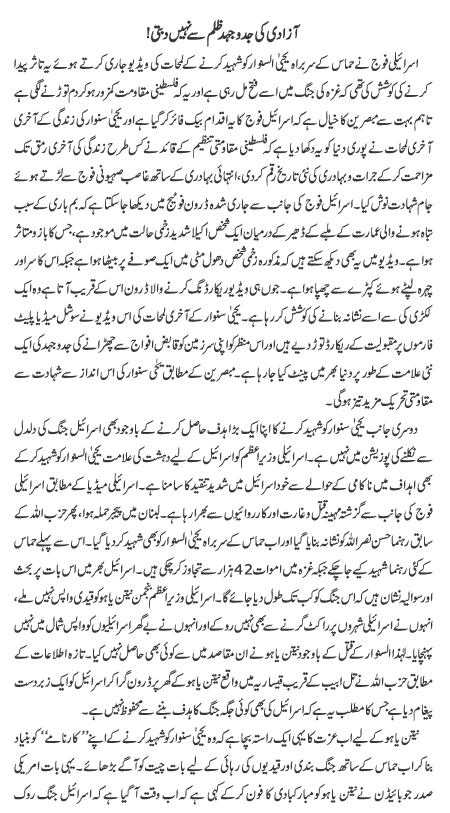 آزادی کی جدوجہد ظلم سے نہیں دبتی!
اسرائیلی فوج نے حماس کے سربراہ یحییٰ السنوار کو شہید کرنے کے لمحات کی ویڈیو جاری کرتے ہوئے یہ تاثر پیدا
کرنے کی کوشش کی تھی کہ غزہ کی جنگ میں اسے فتح مل رہی ہے اور یہ کہ فلسطینی مقاومت کمزور ہو کر دم توڑنے لگی ہے
تاہم بہت سے مبصرین کا خیال ہے کہ اسرائیلی فوج کا یہ اقدام بیک فائر کر گیا ہے اور یحییٰ سنوار کی زندگی کے آخری
آخری لمحات نے پوری دنیا کو یہ دکھا دیا ہے کہ فلسطینی مقاومتی تنظیم کے قائد نے کس طرح زندگی کی آخری رمق تک
مزاحمت کر کے جرات و بہادری کی نئی تاریخ رقم کر دی، انتہائی بہادری کے ساتھ غاصب صہیونی فوج سے لڑتے ہوئے
جام شہادت نوش کیا۔ اسرائیلی فوج کی جانب سے جاری شدہ ڈرون فوٹیج میں دیکھا جاسکتا ہے کہ بم باری کے سبب
تباہ ہونے والی عمارت کے ملبے کے ڈھیر کے درمیان ایک شخص اکیلا شدید زخمی حالت میں موجود ہے، جس کا بازو متاثر
ہوا ہے۔ ویڈیو میں یہ بھی دیکھ سکتے ہیں کہ مذکورہ زخمی شخص دھول مٹی میں ایک صوفے پر بیٹھا ہوا ہے جبکہ اس کا سر اور
چہرہ لپٹے ہوئے کپڑے سے چھپا ہوا ہے۔ جوں ہی ویڈیو ریکارڈنگ کرنے والا ڈرون اس کے قریب آتا ہے وہ ایک
لکڑی کی سے اسے نشانہ بنانے کی کوشش کر رہا ہے۔ یحییٰ سنوار کے آخری لمحات کی اس ویڈیو نے سوشل میڈیا پلیٹ
فارموں پر مقبولیت کے ریکارڈ توڑ دیے ہیں اور اس منظر کو اپنی سرزمین کو قابض افواج سے چھڑانے کی جدوجہد کی ایک
نئی علامت کے طور پر دنیا بھر میں پینٹ کیا جا رہا ہے۔ مبصرین کے مطابق یحییٰ سنوار کی اس انداز سے شہادت سے
مقاومتی تحریک مزید تیز ہوگی۔
دوسری جانب یحییٰ سنوار کو شہید کرنے کا اپنا ایک بڑا ہدف حاصل کرنے کے باوجود بھی اسرائیل جنگ کی دلدل
سے نکلنے کی پوزیشن میں نہیں ہے۔ اسرائیلی وزیر اعظم کو اسرائیل کے لیے دہشت کی علامت یحییٰ السنوار کو شہید کر کے
بھی اہداف میں ناکامی کے حوالے سے خود اسرائیل میں شدید تنقید کا سامنا ہے۔ اسرائیلی میڈیا کے مطابق اسرائیلی
فوج کی جانب سے گزشتہ مہینہ قتل و غارت اور کارروائیوں سے بھرا رہا ہے۔ لبنان میں پیجر حملہ ہوا، پھر حزب اللہ کے
سابق رہنما حسن نصراللہ کو نشانہ بنایا گیا اور اب حماس کے سربراہ یحییٰ السنوار کو بھی شہید کر دیا گیا۔ اس سے پہلے حماس
کے کئی رہنما شہید کیے جاچکے جبکہ غزہ میں اموات 42 ہزار سے تجاوز کر چکی ہیں۔ اسرائیل بھر میں اس بات پر بحث
اور سوالیہ نشان ہیں کہ اس جنگ کو کب تک طول دیا جائے گا۔ اسرائیلی وزیر اعظم بنجمن نیتن یاہو کو قیدی واپس نہیں ملے،
انہوں نے اسرائیلی شہروں پر راکٹ گرنے سے بھی نہیں روکے اور انہوں نے بے گھر اسرائیلیوں کو واپس شمال میں نہیں
پہنچایا۔ لہٰذا السنوار کے قتل کے باوجود نیتن یاہو نے ان مقاصد میں سے کوئی بھی حاصل نہیں کیا۔ تازہ اطلاعات کے
مطابق حزب اللہ نے تل ابیب کے قریب قیساریہ میں واقع نیتن یاہو کے گھر پر ڈرون گرا کر اسرائیل کو ایک زبردست
پیغام دیا ہے جس کا مطلب یہ ہے کہ اسرائیل کی بھی کوئی جگہ جنگ کا ہدف بننے سے محفوظ نہیں ہے۔
نیتن یاہو کے لیے اب عزت کا یہی ایک راستہ بچا ہے کہ وہ یحییٰ سنوار کو شہید کرنے کے اپنے ”کارنامے“ کو بنیاد
بنا کر اب حماس کے ساتھ جنگ بندی اور قیدیوں کی رہائی کے لیے بات چیت کو آگے بڑھائے۔ یہی بات امریکی
صدر جو بائیڈن نے نیتن یاہو کو مبارکبادی کا فون کر کے کہی ہے کہ اب وقت آگیا ہے کہ اسرائیل جنگ روک